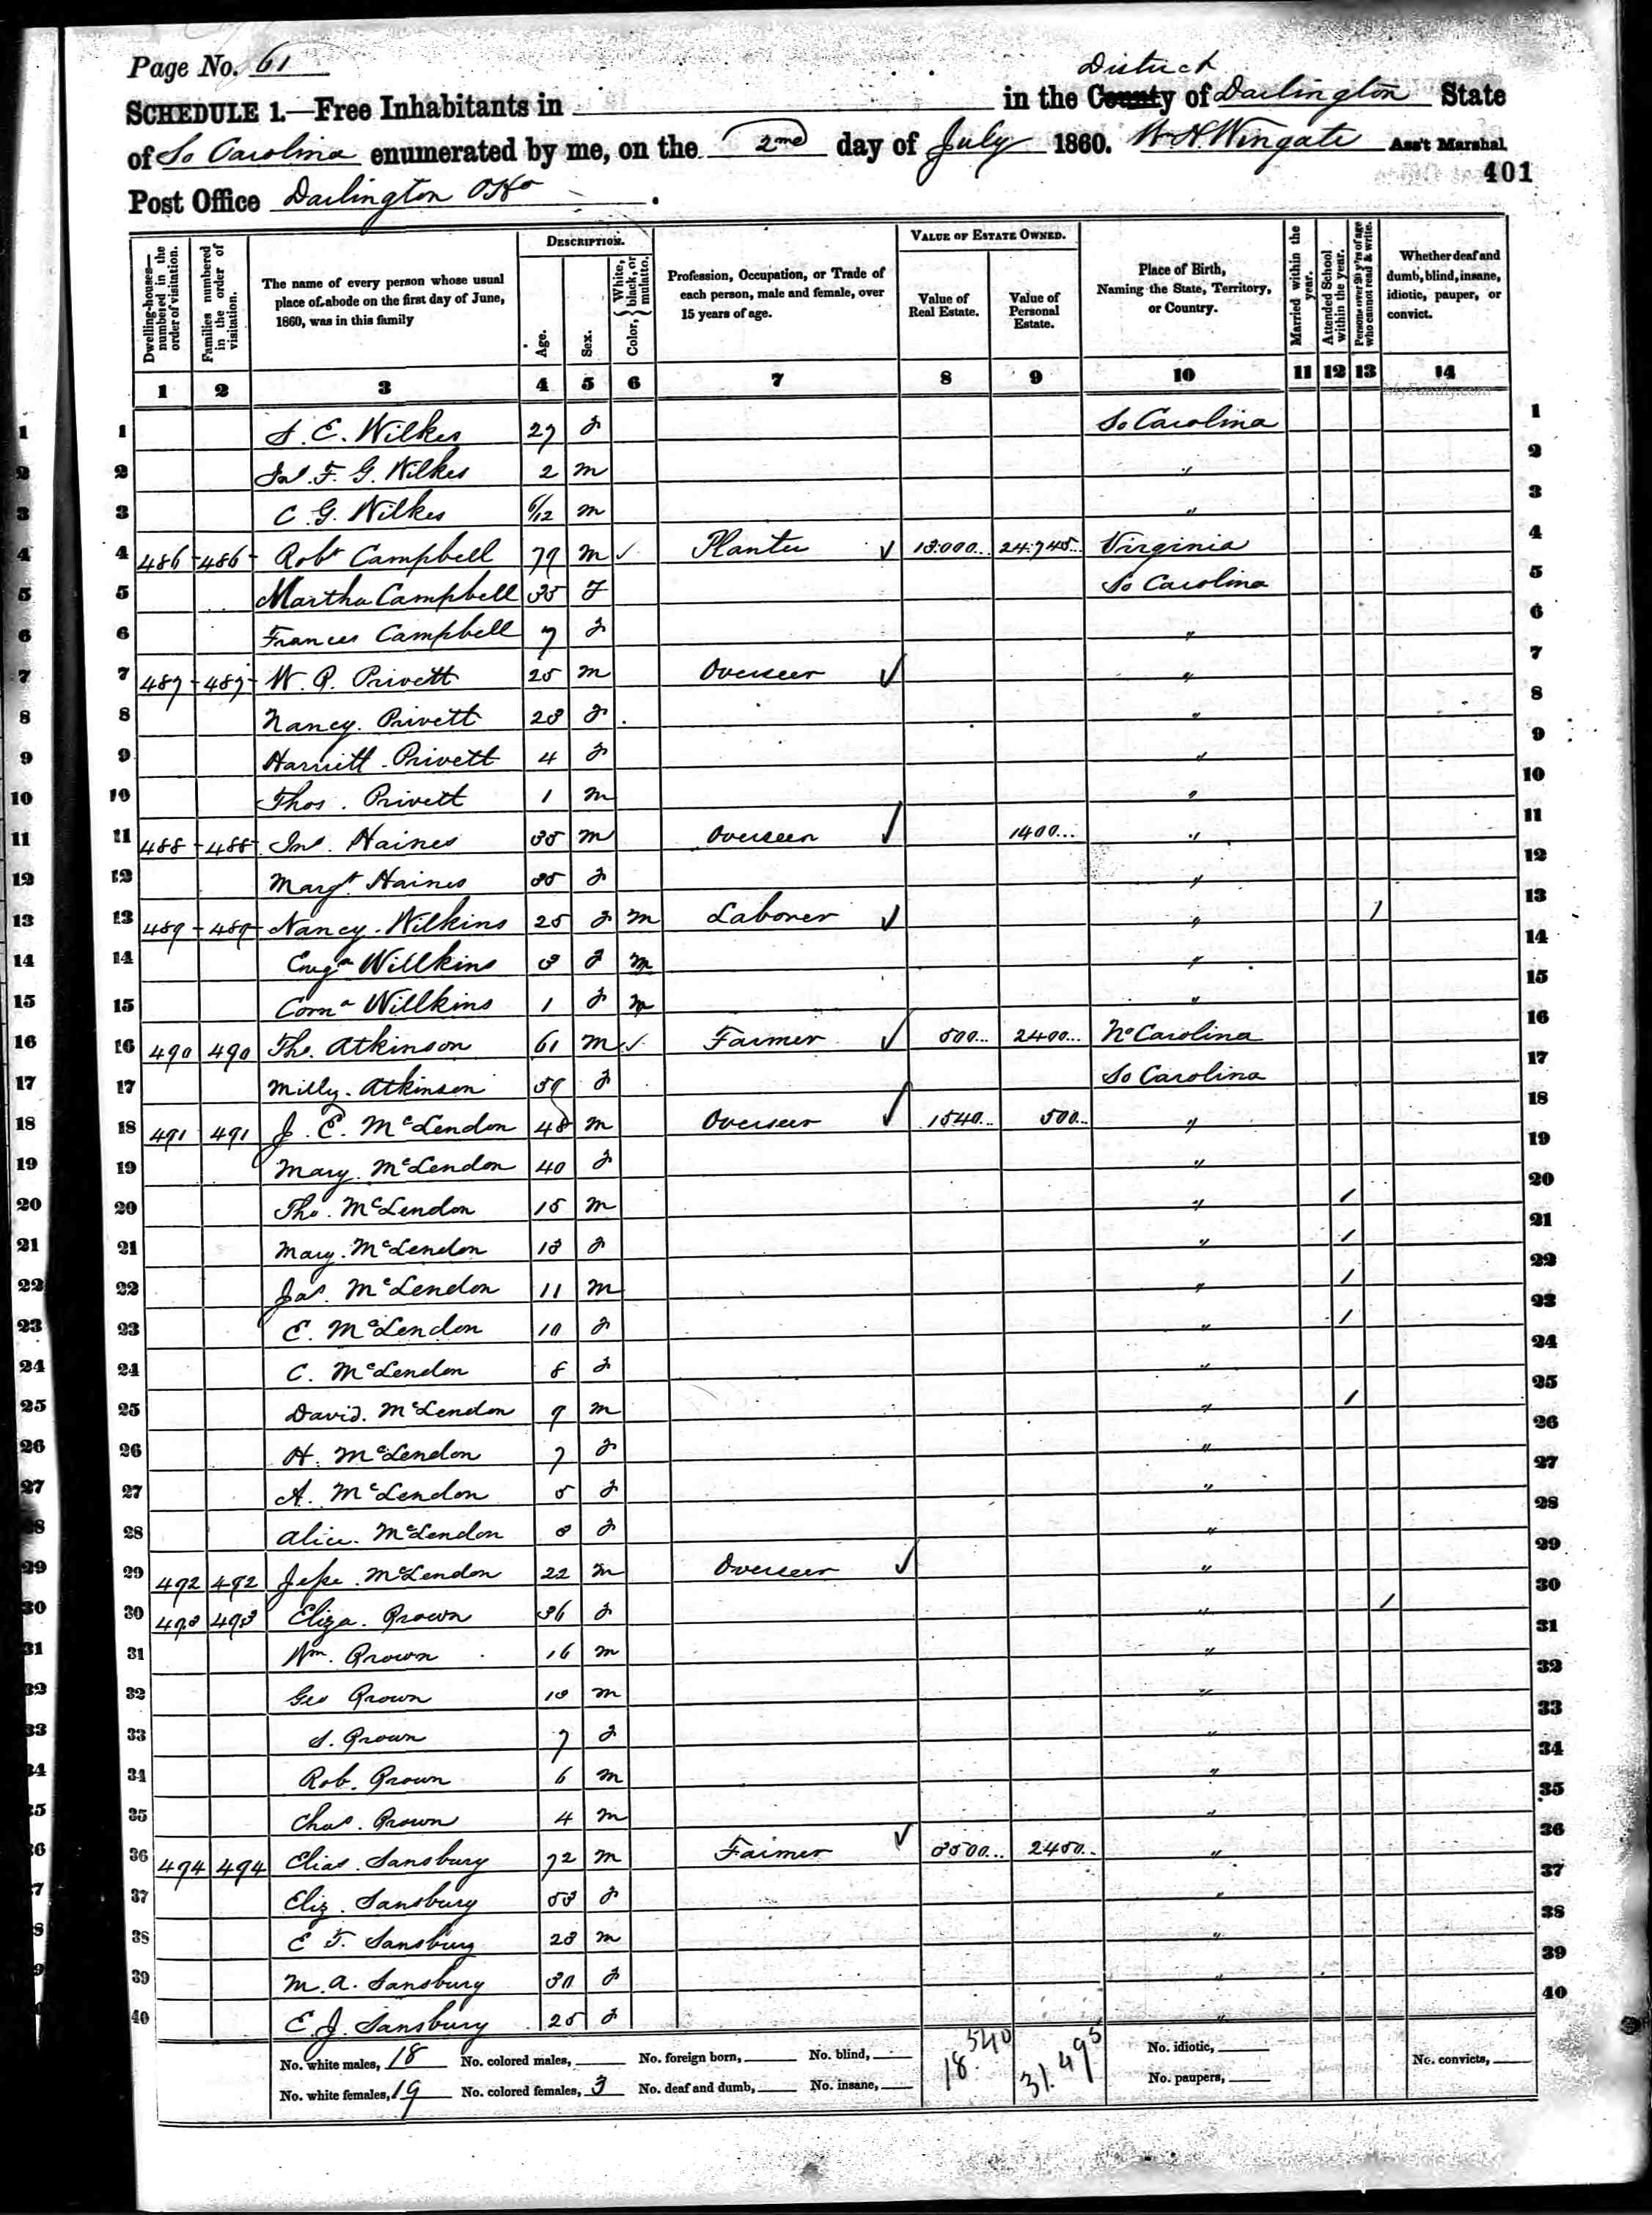 Page No. 61
SCHEDULE 1.—Free Inhabitants in in the County District of Darlington State
of So Carolina enumerated by me, on the 2nd day of July 1860. W H Wingate Ass't Marshal
401
Post Office Darlington
Dwelling-houses—numbered in the order of visitation. Families numbered in the order of visitation. The name of every person whose usual place of abode on the first day of June, 1860, was in this family DESCRIPTION. Age. Sex. Color, White, black, or mulatto. Profession, Occupation, or Trade of each person, male and female, over 15 years of age. VALUE OF ESTATE OWNED. Value of Real Estate. Value of Personal Estate. Place of Birth, Naming the State, Territory, or Country. Married within the year. Attended School within the year. Persons over 20 y'rs of age who cannot read & write. Whether deaf and dumb, blind, insane, idiotic, pauper, or convict.
1 2 3 4 5 6 7 8 9 10 11 12 13 14
MyFamily.com
1 S. E. Wilkes 27 f So Carolina 1
2 Jno. F. G. Wilkes 2 m " 2
3 C. G. Wilkes 6/12 m " 3
4 486 486 Robt Campbell 79 m ✓ Planter ✓ 13.000 24.745 Virginia 4
5 Martha Campbell 35 F So Carolina 5
6 Frances Campbell 7 f " 6
7 487 487 W. P. Privett 25 m Overseer ✓ " 7
8 Nancy. Privett 23 f " 8
9 Harriett. Privett 4 f " 9
10 Thos. Privett 1 m " 10
11 488 488 Jno. Haines 35 m Overseer ✓ 1400 " 11
12 Margt Haines 35 f " 12
13 489 489 Nancy. Wilkins 25 f m Laborer ✓ " / 13
14 Euga Willkins 3 f m " 14
15 Corna Willkins 1 f m " 15
16 490 490 Tho. Atkinson 61 m ✓ Farmer ✓ 500 2400 No Carolina 16
17 Milly. Atkinson 59 f So Carolina 17
18 491 491 J. E. McLendon 48 m Overseer ✓ 1540 500 " 18
19 Mary. McLendon 40 f " 19
20 Tho. McLendon 15 m " / 20
21 Mary. McLendon 13 f " / 21
22 Jas. McLendon 11 m " / 22
23 E. McLendon 10 f " / 23
24 C. McLendon 8 f " 24
25 David. McLendon 9 m " / 25
26 H. McLendon 7 f " 26
27 A. McLendon 5 f " 27
28 Alice. McLendon 3 f " 28
29 492 492 Jesse. McLendon 22 m Overseer ✓ " 29
30 493 493 Eliza. Brown 36 f " / 30
31 Wm. Brown 16 m " 31
32 Geo Brown 13 m " 32
33 S. Brown 7 f " 33
34 Rob. Brown 6 m " 34
35 Chas. Brown 4 m " 35
36 494 494 Elias. Sansbury 72 m Farmer ✓ 3500 2450 " 36
37 Eliz. Sansbury 53 f " 37
38 E T. Sansbury 23 m " 38
39 M. A. Sansbury 30 f " 39
40 E. J. Sansbury 25 f " 40
No. white males, 18 No. colored males, No. foreign born, No. blind, 18.540 31.495 No. idiotic, No. convicts,
No. white females, 19 No. colored females, 3 No. deaf and dumb, No. insane, No. paupers,